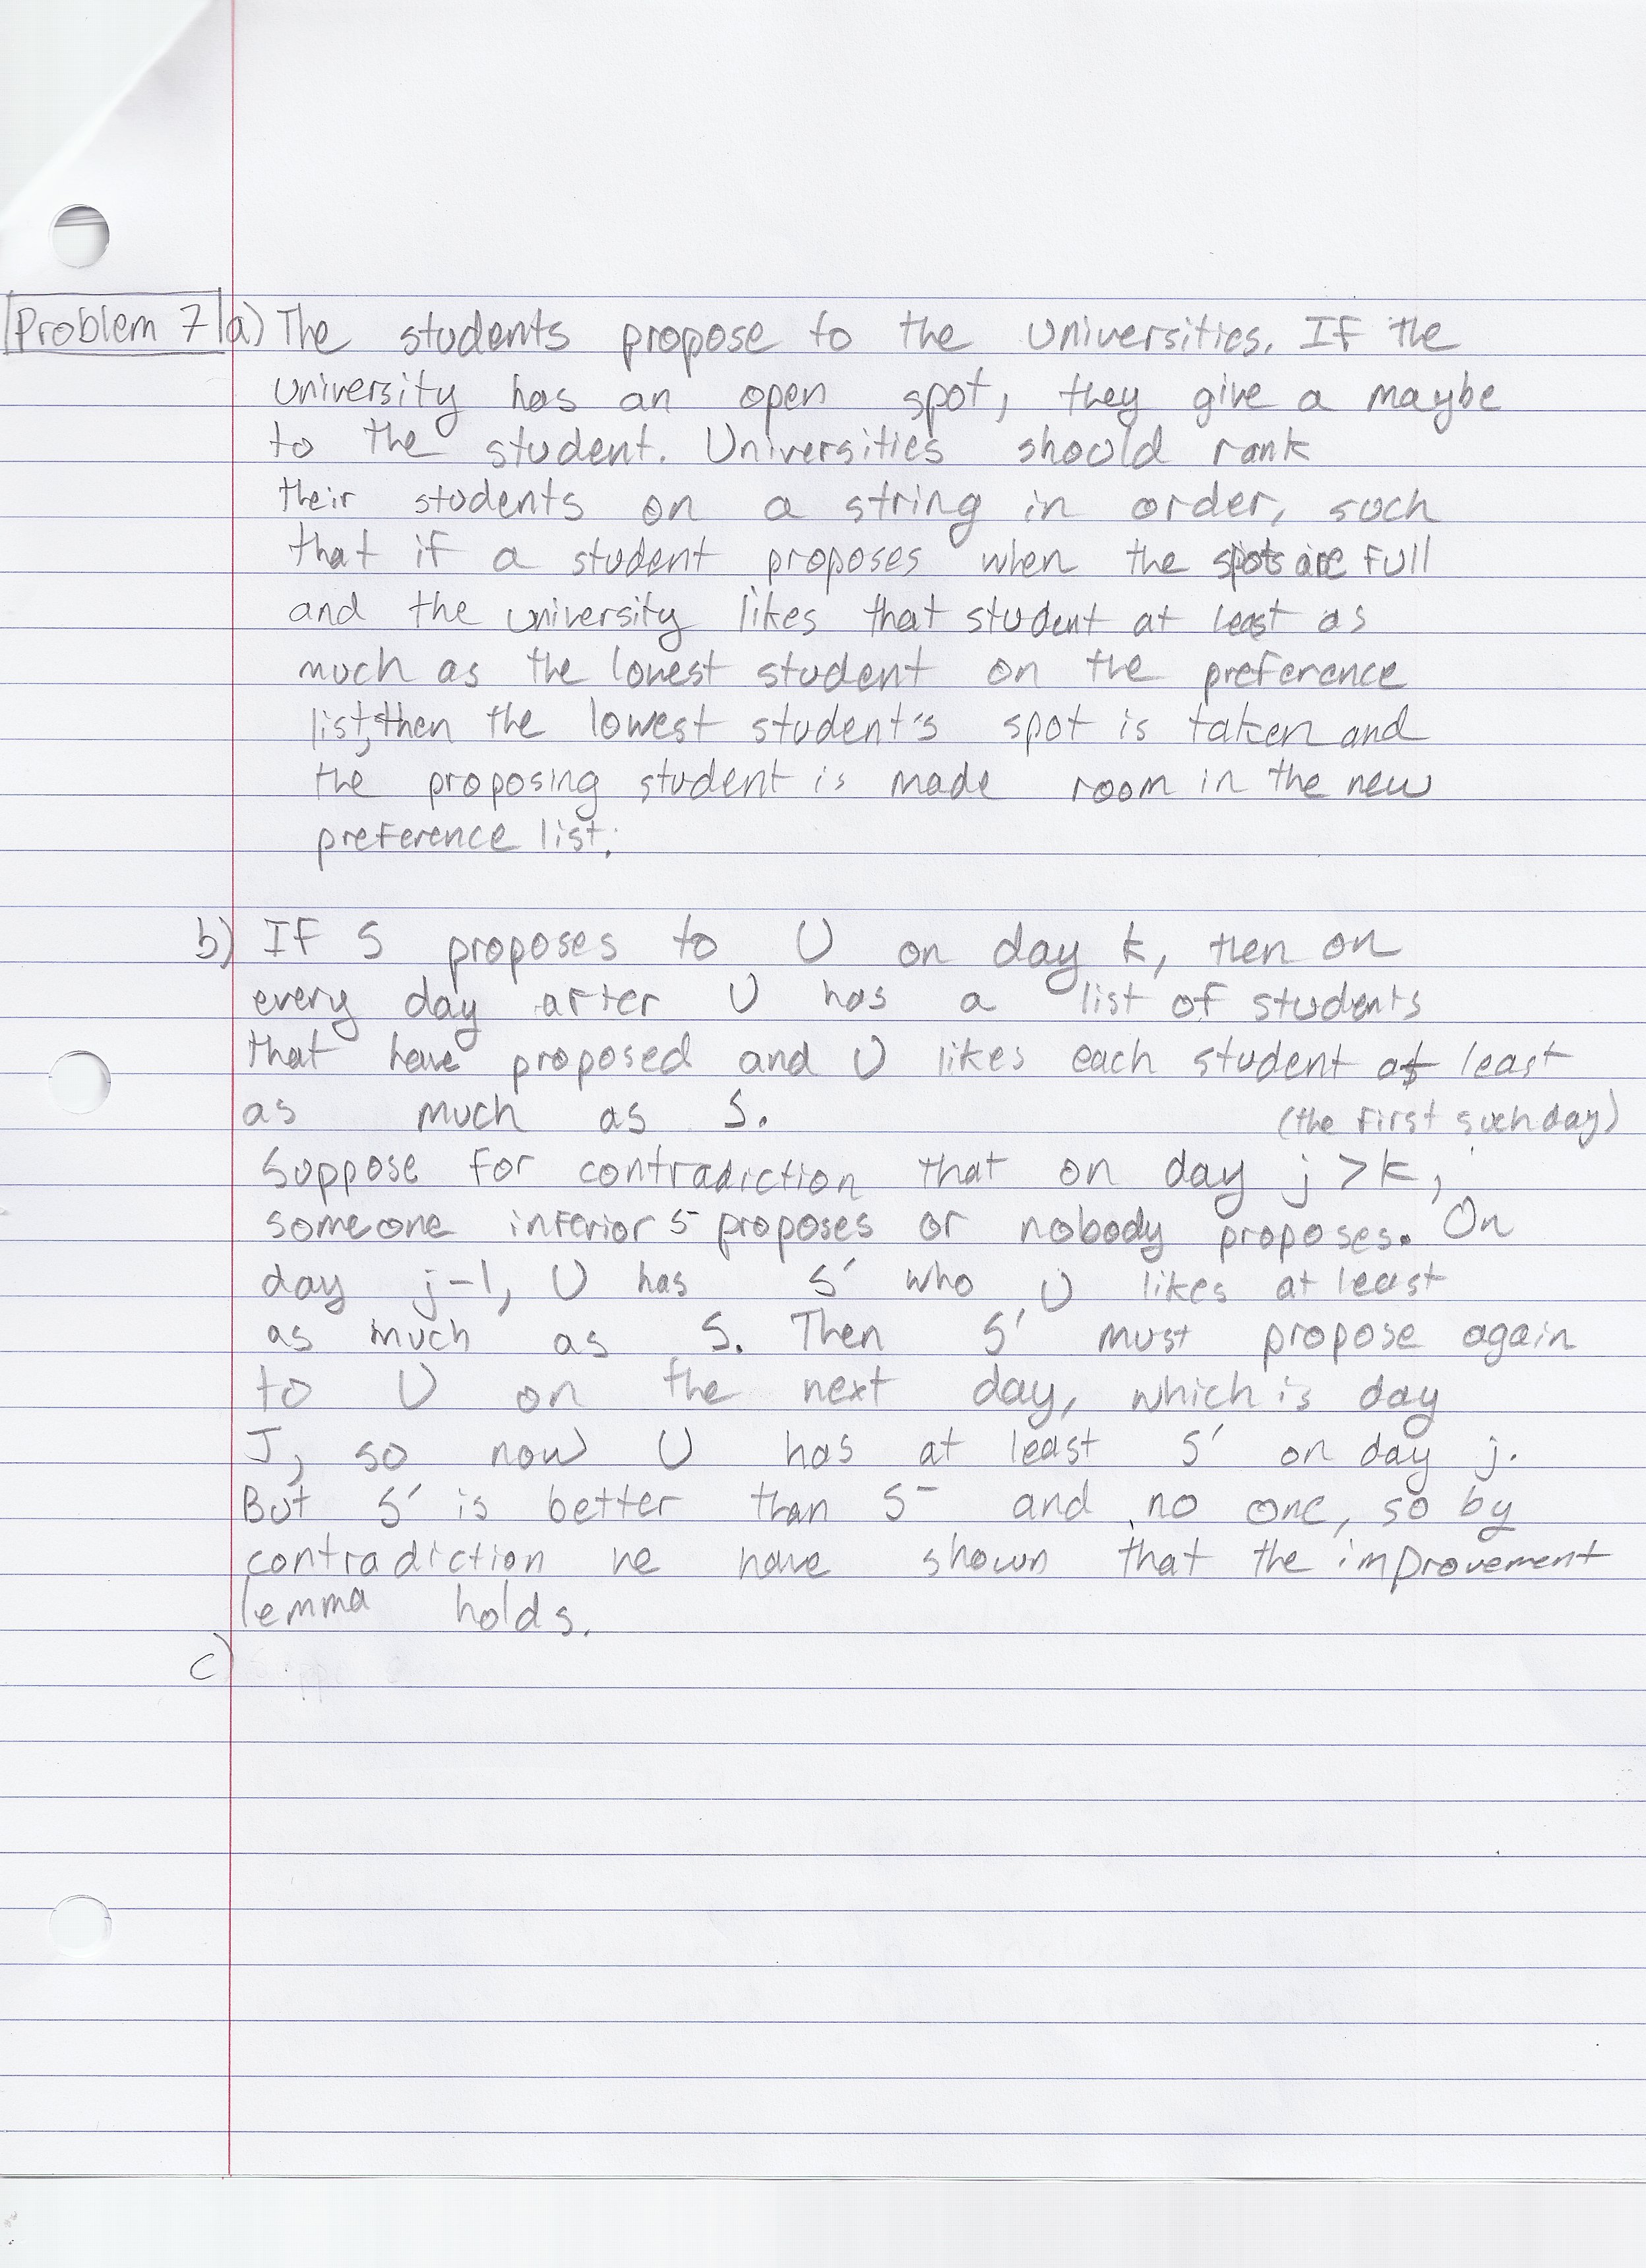 Problem 7 a) The students propose to the Universities. If the
university has an open spot, they give a maybe
to the student. Universities should rank
their students on a string in order, such
that if a student proposes when the spots are full
and the university likes that student at least as
much as the lowest student on the preference
list, then the lowest student's spot is taken and
the proposing student is made room in the new
preference list.
b) If S proposes to U on day k, then on
every day after U has a list of students
that have proposed and U likes each student at least
as much as S.
(the first such day)
Suppose for contradiction that on day j > k,
someone inferior S⁻ proposes or nobody proposes. On
day j-1, U has S' who U likes at least
as much as S. Then S' must propose again
to U on the next day, which is day
J, so now U has at least S' on day j.
But S' is better than S⁻ and no one, so by
contradiction we have shown that the improvement
lemma holds.
c)